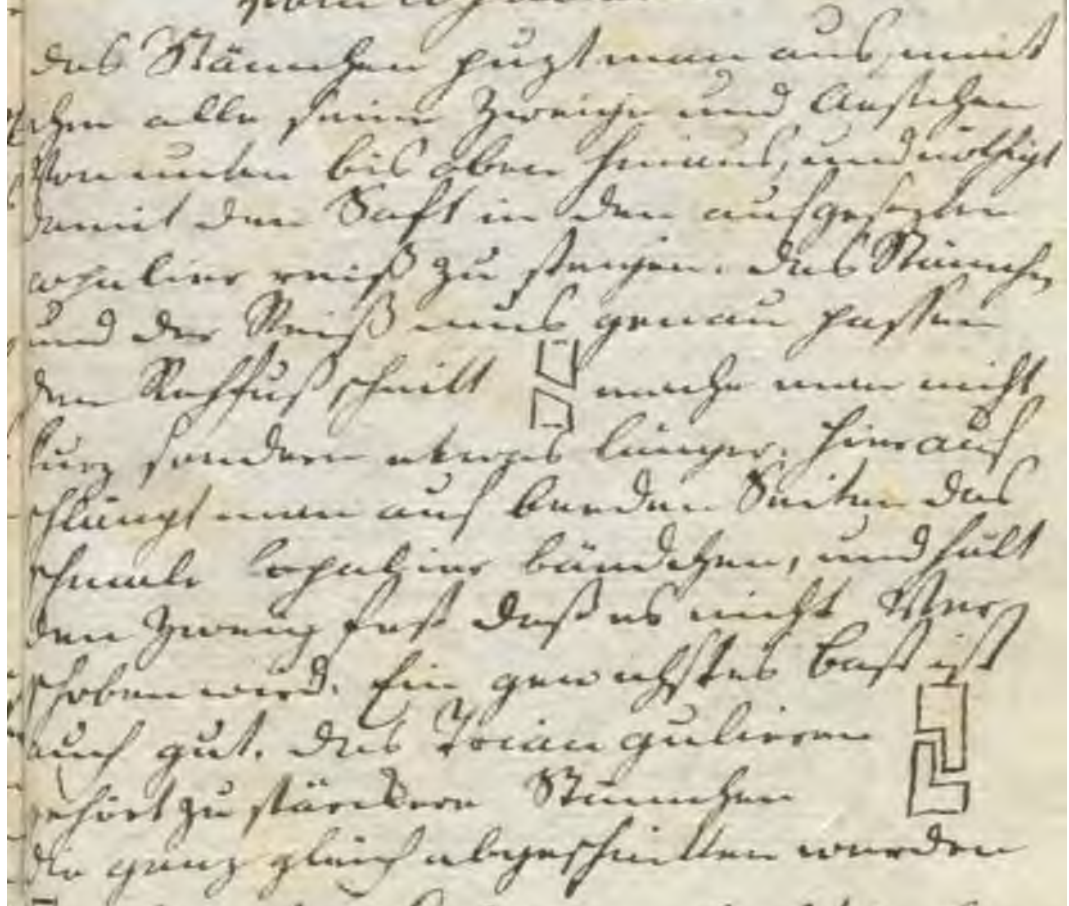 das Stämchen puzt man aus, nimt
ihm alle seine Zweige und Aestchen
von unten bis oben hinaus, und nöthigt
damit den Saft in den aufgesezten
copulier reiß zu steigen. das Stämchen
und der Reiß mus genau passen
den Rehfuß schnitt mache man nicht
kurz sondern etwas länger. hierauf
schlingt man auf beeden Seiten das
schmale Copulier bändchen, und hält
den Zweig fest daß es nicht Ver
schoben wird. Ein gewichstes Bast ist
auch gut. das Triangulieren
gehört zu stärckern Stämchen
die ganz gleich abgeschnitten werden